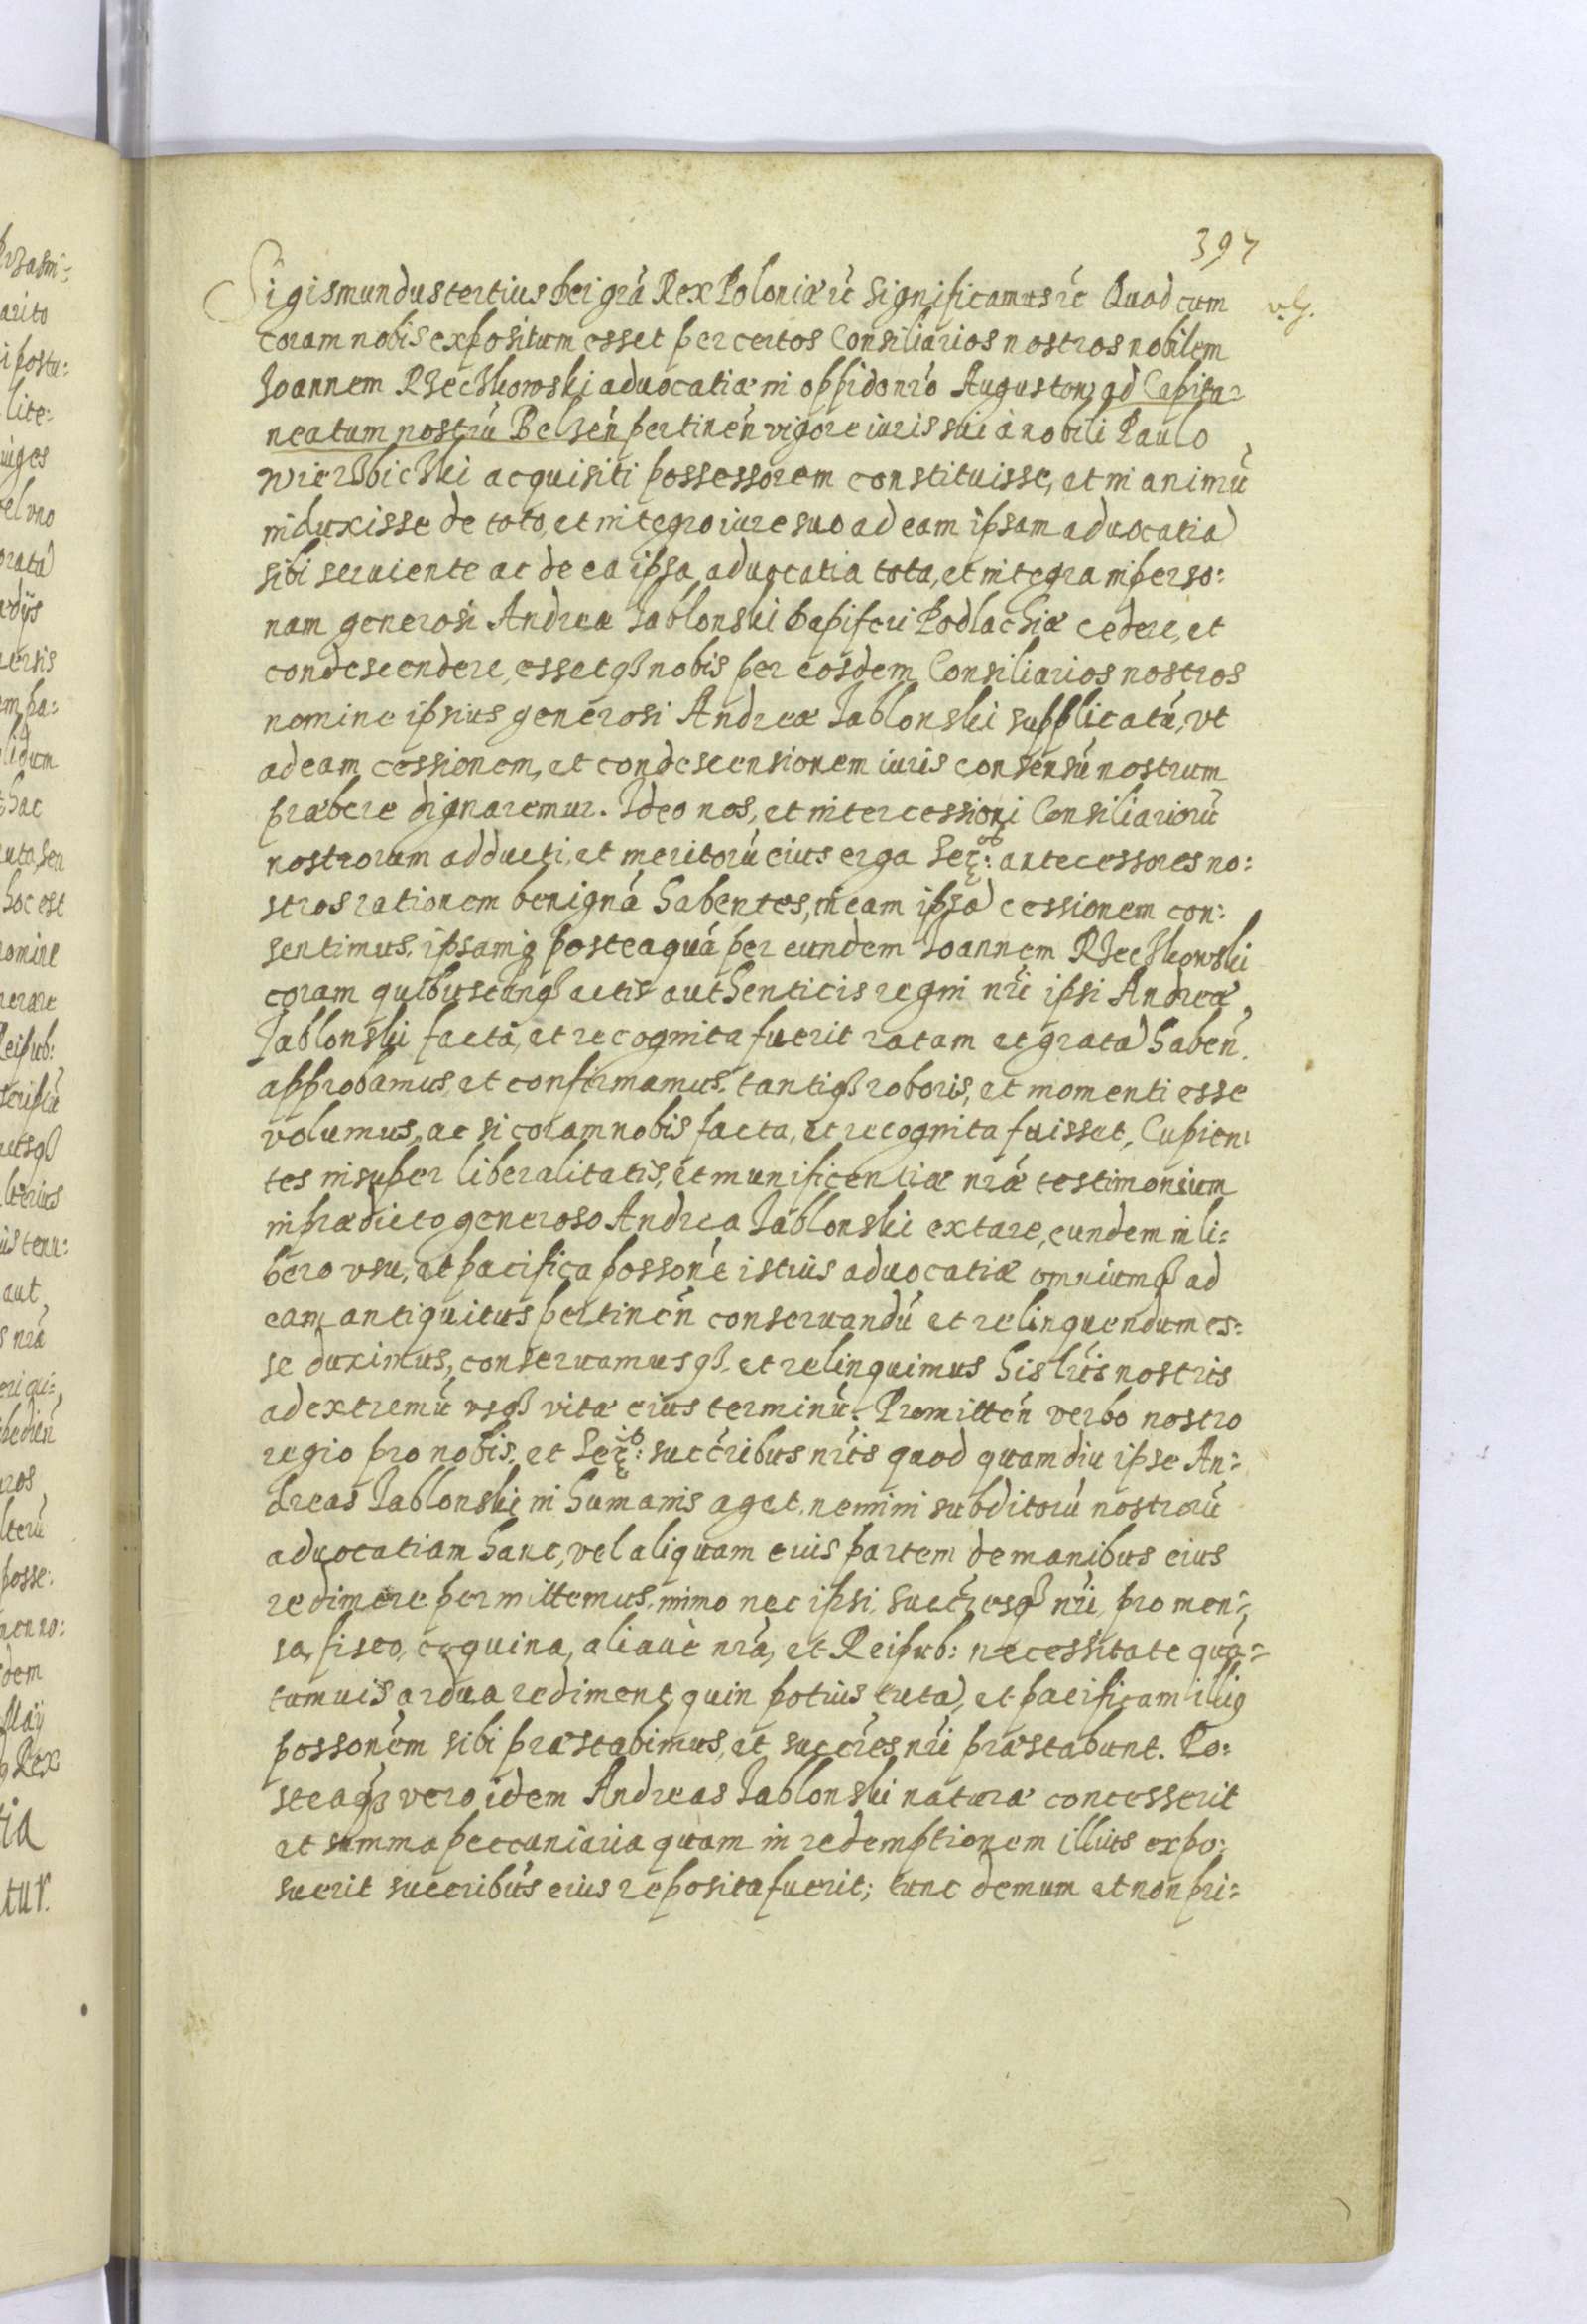 397
Sigismundus tertius Dei grã Rex Poloniæ rc̃ Significamus rc̃ Quod cum
coram nobis expositum esset per certos Consiliarios nostros nobilem
Ioannem Rzeczkowski aduocatiæ in oppido nr̃o Augustow ad Capita=
neatum nostrũ Belsen̄ pertinen̄ vigore iuris sui à nobili Paulo
Wierzbiczki acquisiti possessorem constituisse, et in animũ
induxisse de toto, et integro iure suo ad eam ipsam aduocatiã
sibi seruiente ac de ea ipsa aduocatia tota, et integra in perso:
nam generosi Andreæ Jablonski Dapiferi Podlachiæ cedere, et
condescendere, essetqȝ nobis per eosdem Consiliarios nostros
nomine ipsius generosi Andreæ Jablonski supplicatũ, vt
ad eam cessionem, et condescensionem iuris consensũ nostrum
præbere dignaremur. Ideo nos, et intercessioni Consiliariorũ
nostrorum adducti, et meritorũ eius erga Ser: antecessores no:
stros rationem benignã habentes, in eam ipsã cessionem con:
sentimus, ipsamqȝ posteaquã per eundem Joannem Rzeczkowski
coram quibuscunqȝ actis authenticis regni nr̃i ipsi Andreæ
Jablonski facta, et recognita fuerit ratam et gratã haben̄
approbamus et confirmamus, tantiqȝ roboris, et momenti esse
volumus, ac si coram nobis facta, et recognita fuisset, Cupien:
tes insuper liberalitatis, et munificentiæ nr̃æ testimonium
in prædicto generoso Andrea Jablonski extare, eundem in li:
bero vsu, et pacifica possonẽ istius aduocatiæ omniumqȝ ad
eam antiquitus pertinen̄ conseruandũ et relinquendum es:
se duximus, conseruamusqȝ, et relinquimus his lr̃is nostris
ad extremũ vsqȝ vitæ eius terminũ. Promitten̄ verbo nostro
regio pro nobis, et Ser: succr̃ibus nr̃is quod quamdiu ipse An:
dreas Jablonski in humanis aget, nemini subditorũ nostrorũ
aduocatiam hanc, vel aliquam eius partem de manibus eius
redimere permittemus, immo nec ipsi, succr̃esqȝ nr̃i, pro men:
sa, fisco, coquina, aliaue nr̃a, et Reipub: necessitate quã=
tumuis ardua rediment, quin potius tutã, et pacificam illiq
possonẽm sibi præstabimus, et succr̃es nr̃i præstabunt. Po:
steaqȝ vero idem Andreas Jablonski naturæ concesserit
et summa peccuniaria quam in redemptionem illius expo:
suerit succr̃ibus eius reposita fuerit; tunc demum et non pri=